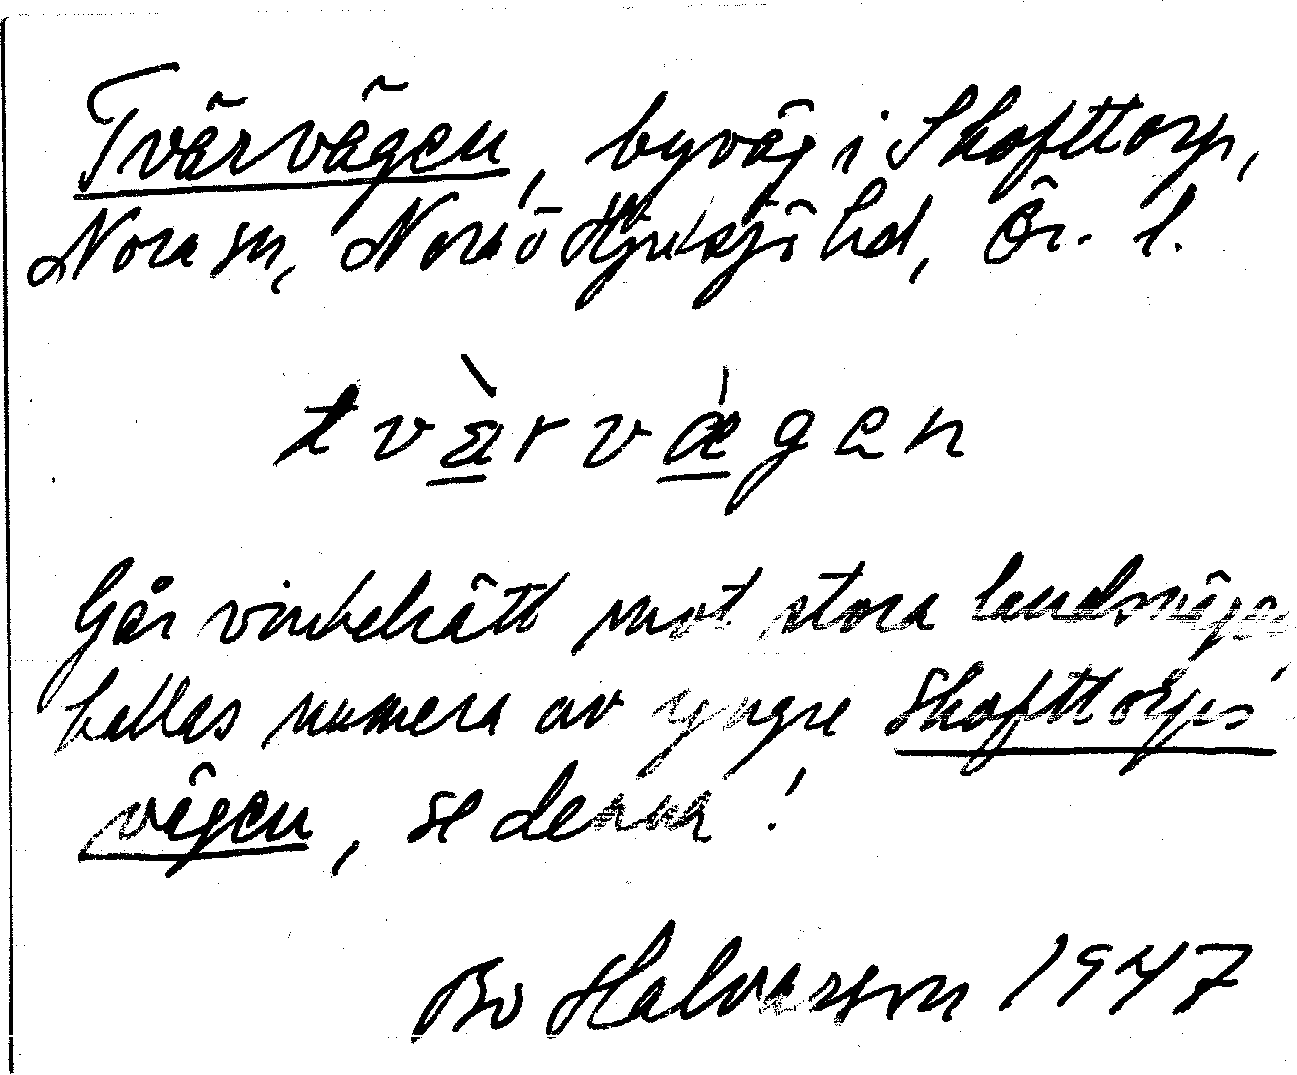 Tvärvägen, byväg i Skofttorp,
Nora sn, Nora o Hjulsjö hd, Ör. l.
tvæ̀rvǽgen
Går vinkelrätt mot stora landsvägen,
kallas numera av yngre Skofttorps
vägen, se denna!
Bo Halvarson 1947